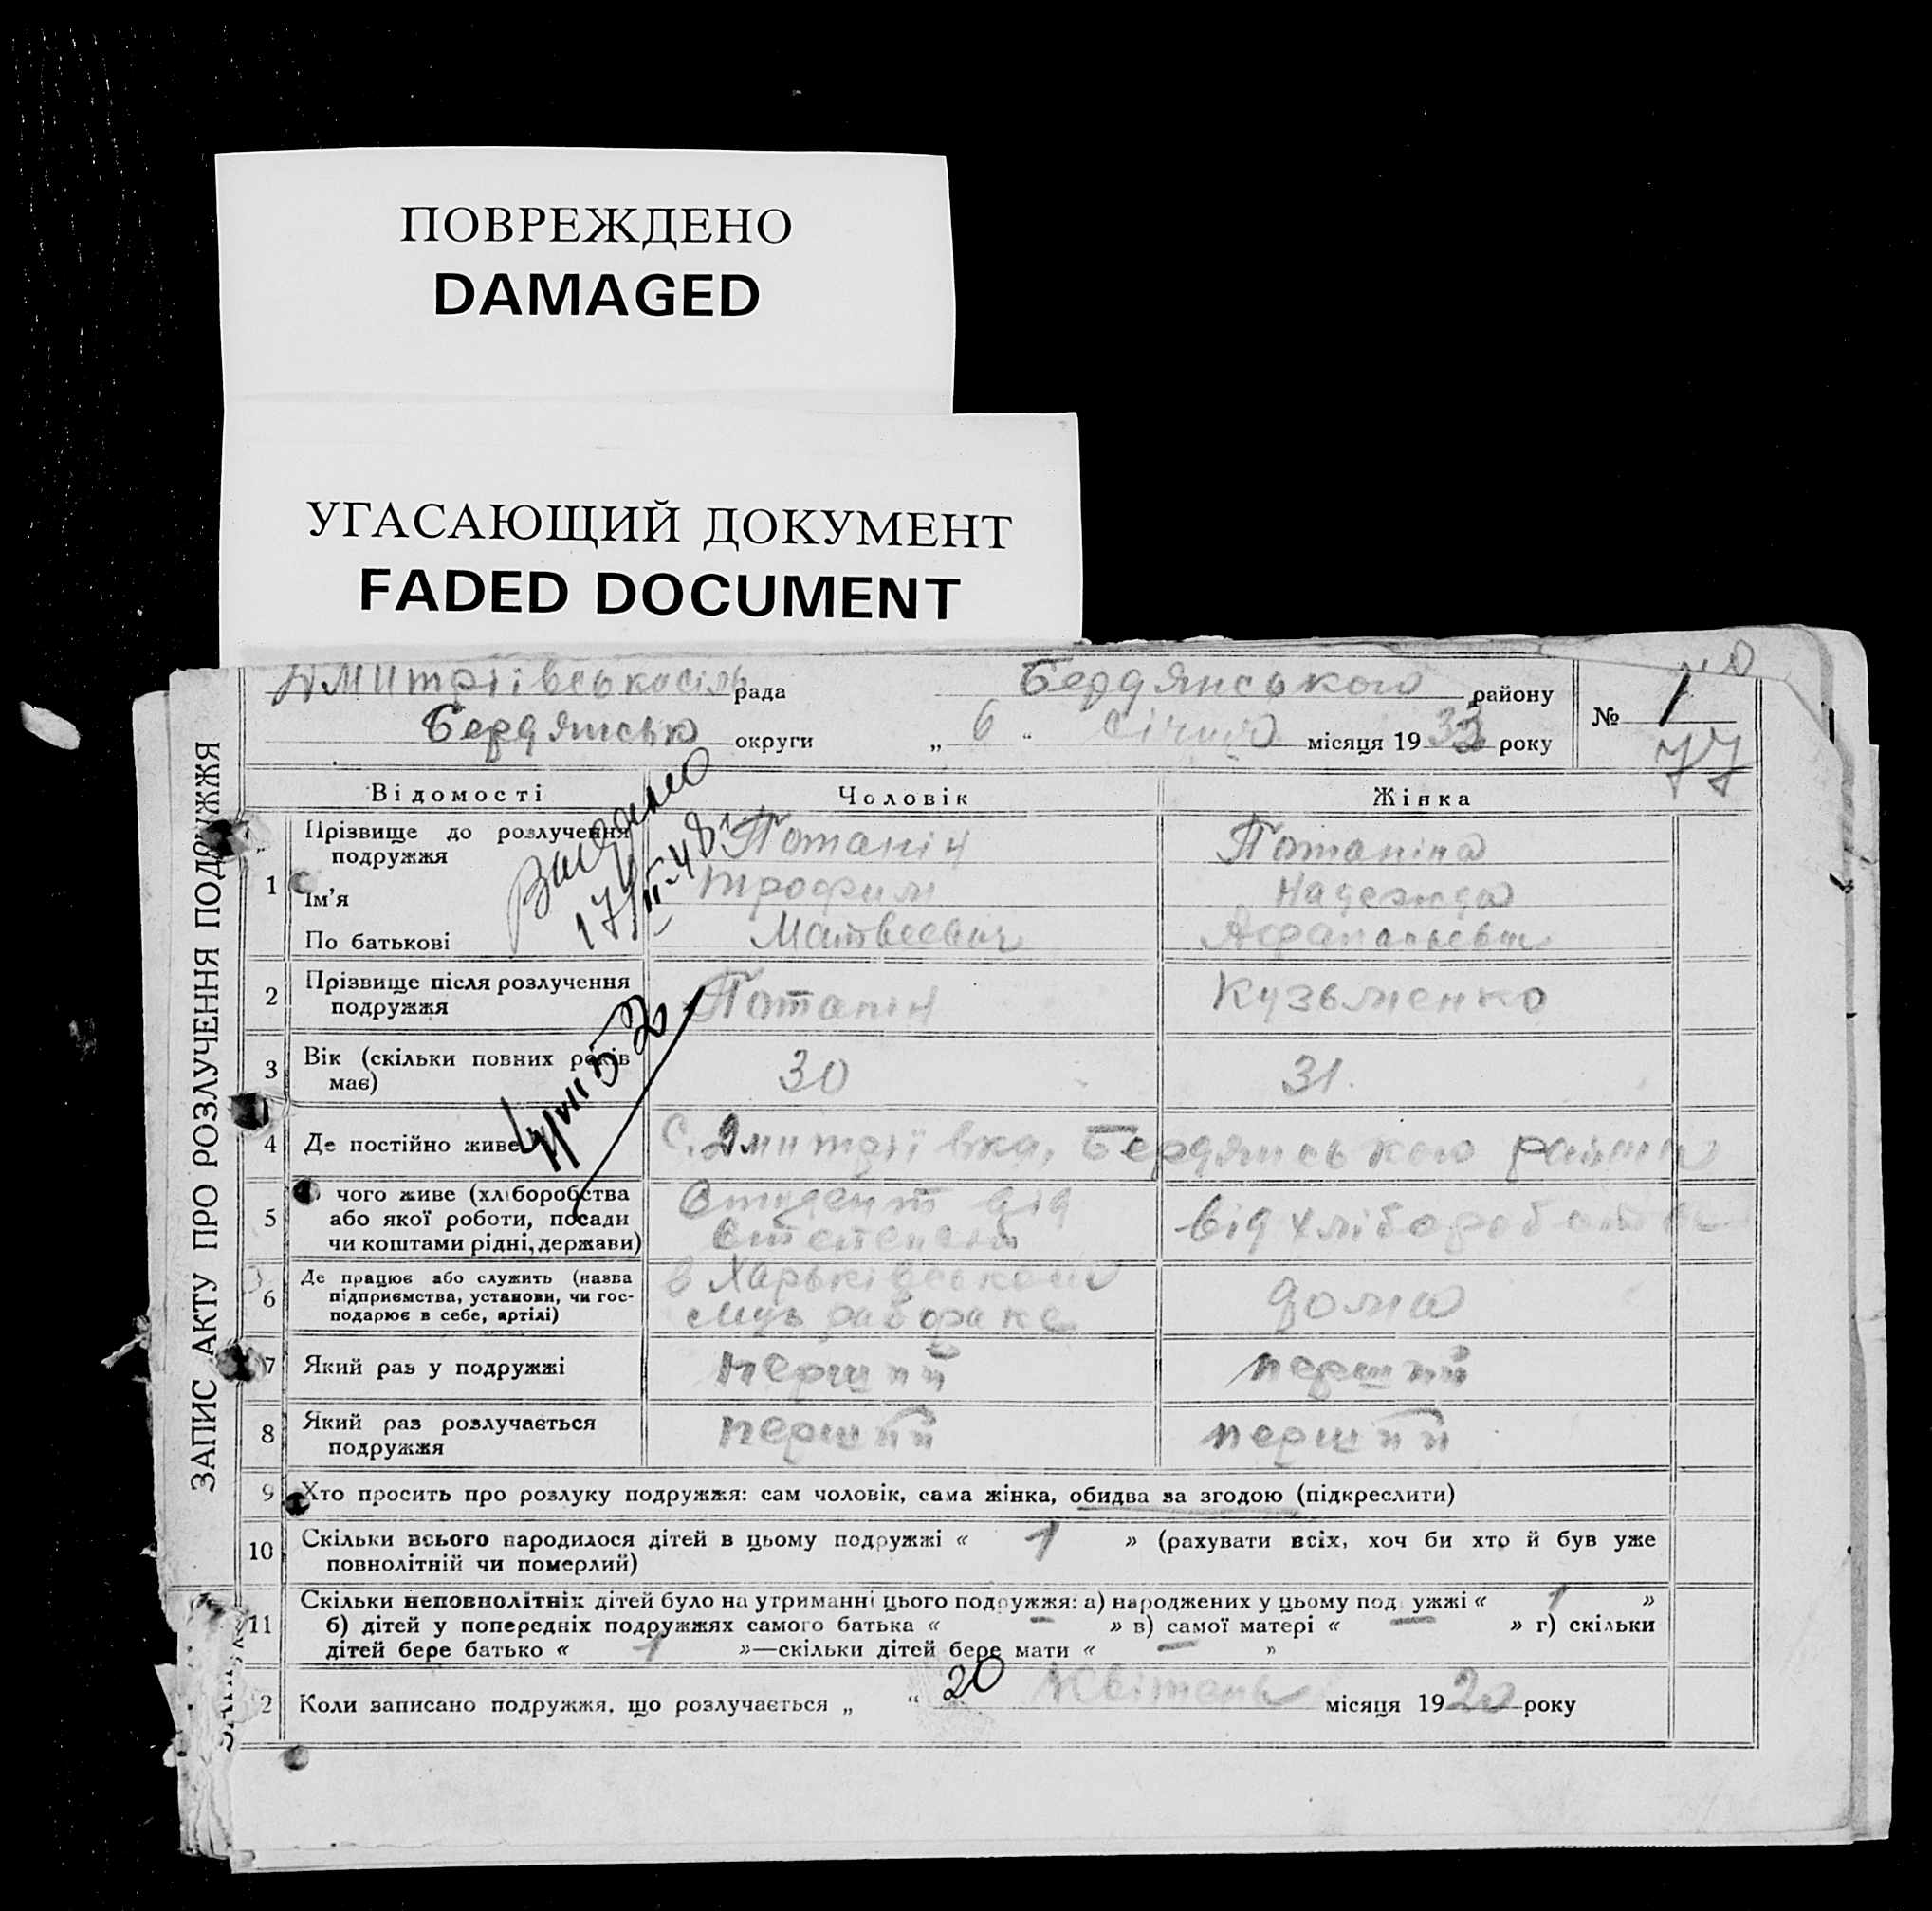 ПОВРЕЖДЕНО
DAMAGED
УГАСАЮЩИЙ ДОКУМЕНТ
FADED DOCUMENT
ЗАПИС АКТУ ПРО РОЗЛУЧЕННЯ ПОДРУЖЖЯ
Дмитріївськасіль рада Бердянського району № 1
Бердянська округи „ 6 “ Січня місяця 1933 року
77
Відомості Чоловік Жінка
1 Прізвище до розлучення Потапін Потапіна
подружжя
Ім'я Трофим Надежда
По батькові Матвеевич
Видано
17/II-48
2 Прізвище після розлучення Потапін Кузьменко
подружжя
3 Вік (скільки повних років 30 31
має)
4/VII 52
4 Де постійно живе С. Дмитрїївка, Бердянського району
5 чого живе (хліборобства Студент від від хліборобства
або якої роботи, посади
чи коштами рідні, держави)
6 Де працює або служить (назва в Харьківському дома
підприємства, установи, чи гос- рабфаке
подарює в себе, артілі)
7 Який раз у подружжі перший перший
8 Який раз розлучається перший перший
подружжя
9 Хто просить про розлуку подружжя: сам чоловік, сама жінка, обидва за згодою (підкреслити)
10 Скільки всього народилося дітей в цьому подружжі « 1 » (рахувати всіх, хоч би хто й був уже
повнолітній чи померлий)
11 Скільки неповнолітніх дітей було на утриманні цього подружжя: а) народжених у цьому под ужжі « 1 »
б) дітей у попередніх подружжях самого батька « — » в) самої матері « — » г) скільки
дітей бере батько « 1 »—скільки дітей бере мати « — »
2 Коли записано подружжя, що розлучається „ “ 20 Квітень місяця 1920 року